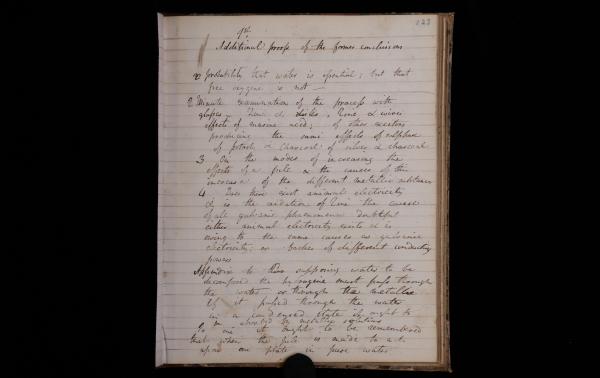 123
Additional proofs of the former conclusions
probability that water is essential; but that
free oxygene is not —
2 Minute examination of the process with
glasses — Zinc & &
effects of marine acid; of other exciters
producing the same effects of sulphure
of potash & charcoal of silver & charcoal
3. On the modes of increasing the
effects of a pile on the causes of the
increase of the different metallic substances
4 Does there exist animal electricity
& is the oxidation of Zinc the cause
of all galvanic phenomena doubtful
either animal electricity exists & is
owing to the same causes as galvanic
electricity; or bodies of different conducting
powers
Appendix to this supposing water to be
decomposed the hydrogene must pass through
the water or through the metallic
If it passed through the water
in a condensed state it ought to
be absorbed by metallic solutions
to be remembered
that when the pile is made to act
upon one plate in pure water